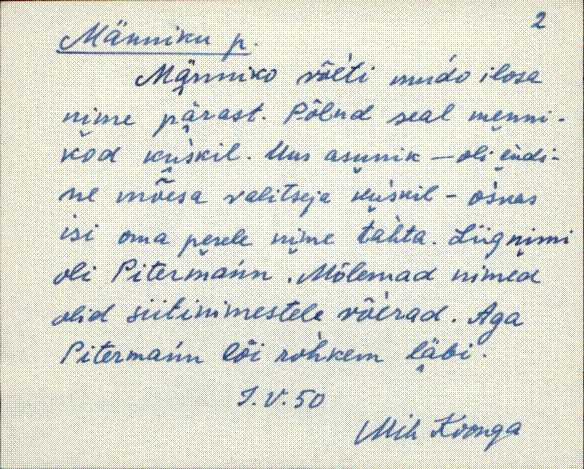 2
Männiku p.
Männiko võeti muido ilosa
nime pärast. Põlnd seal menni-
kod kuskil. Uus asunik – oli endi-
ne mõesa valitseja kuskil – osnas
isi oma perele nime tahta. Liignimi
oli Pitermann. Mõlemad nimed
olid siitinimestele võerad. Aga
Pitermann lõi rohkem läbi.
I.V.50
Mih Koonga